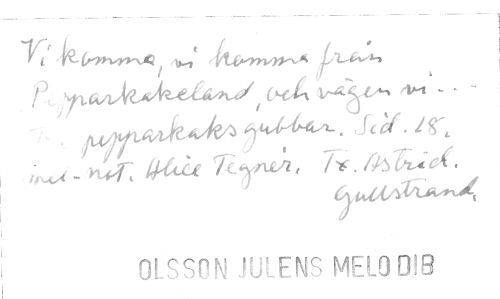 Vi komma, vi komma från
Pepparkakeland, och vägen vi...
pepparkaksgubbar. Sid. 18.
mel-not. Alice Tegnér. Tx. Astrid.
Gullstrand.
OLSSON JULENS MELODIB